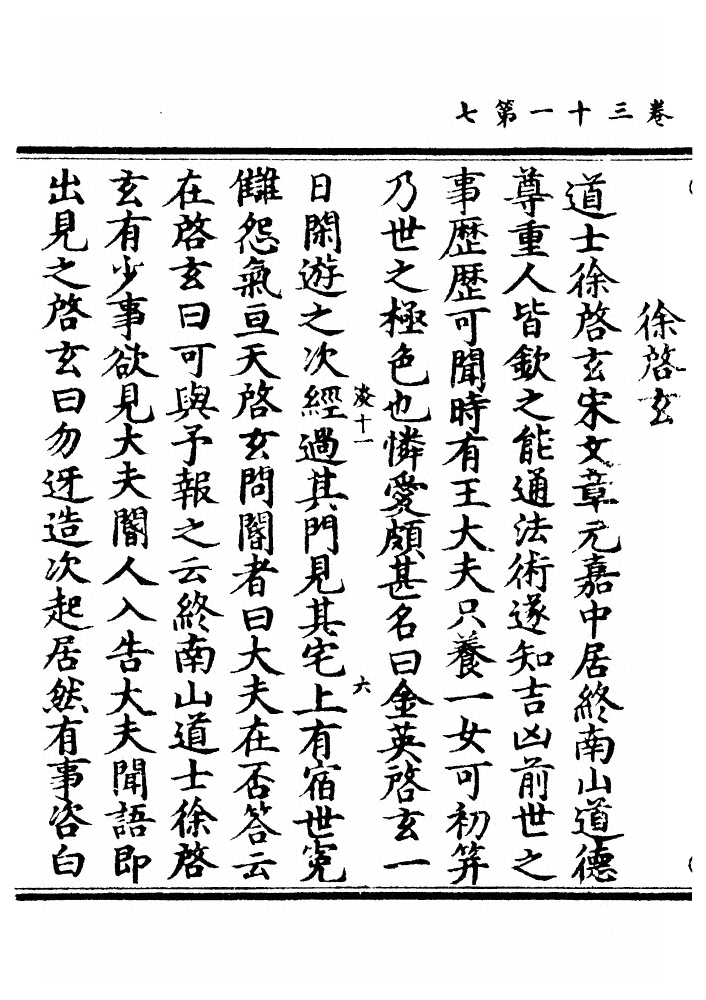 卷三十一第七
徐啓玄
道士徐啓玄宋文章元嘉中居終南山道德
尊重人皆欽之能通法術遂知吉凶前世之
事歷歷可聞時有王大夫只養一女可初笄
乃世之極色也憐愛頗甚名曰金英啓玄一
日閑遊之次經過其門見其宅上有宿世寃
淩十一
六
讎怨氣亘天啓玄問閽者曰大夫在否答云
在啓玄曰可與予報之云終南山道士徐啓
玄有少事欲見大夫閽人入告大夫聞語即
出見之啓玄曰勿迓造次起居然有事咨白